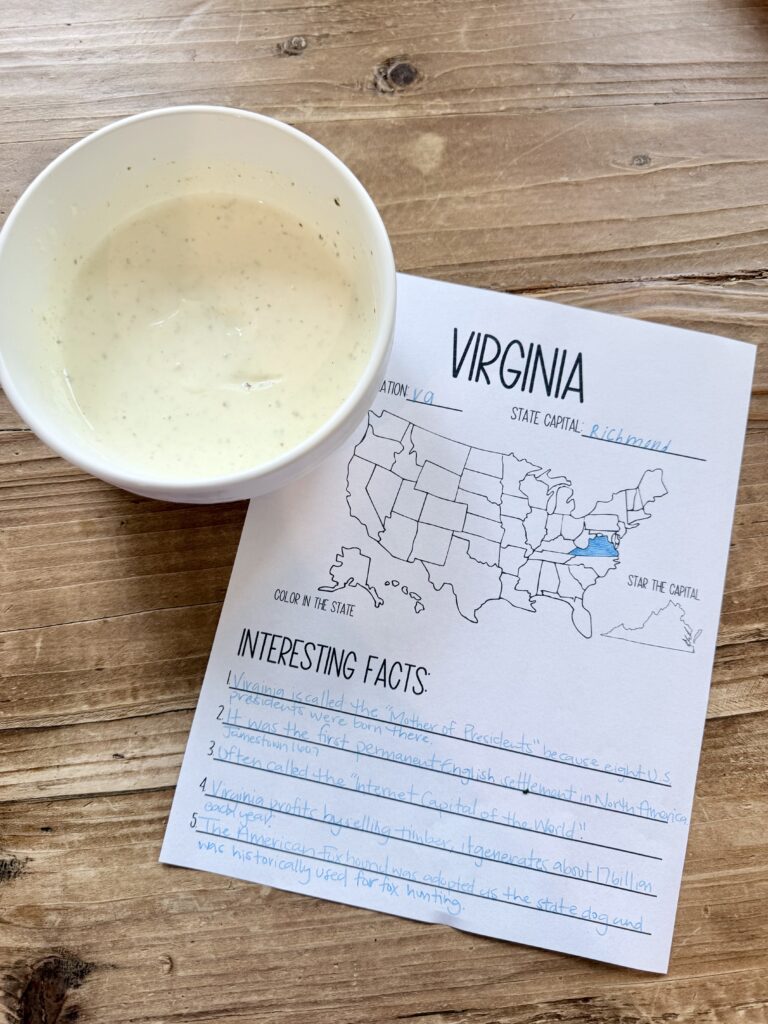 VIRGINIA
ATION: va
STATE CAPITAL: Richmond
COLOR IN THE STATE
STAR THE CAPITAL
INTERESTING FACTS:
1. Virginia is called the "Mother of Presidents" because eight U.S
presidents were born there.
2. It was the first permanent English settlement in North America
Jamestown 1607
3. Often called the "Internet Capital of the World."
4. Virginia profits by selling timber, it generates about 17 billion
each year.
5. The American Foxhound was adopted as the state dog and
was historically used for fox hunting.